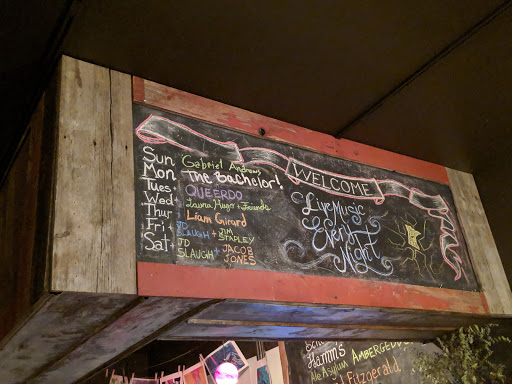 WELCOME
Sun Gabriel Andrews
Mon The Bachelor!
Tues QUEERDO
Wed Laura Hugo + Friends
Thur Liam Girard
Fri JD SLAUGH + JIM STAPLEY
Sat JD SLAUGH + JACOB JONES
Live Music
Every
Night
Hamm's
Ale Asylum AMBERGEDDON
Fitzgerald